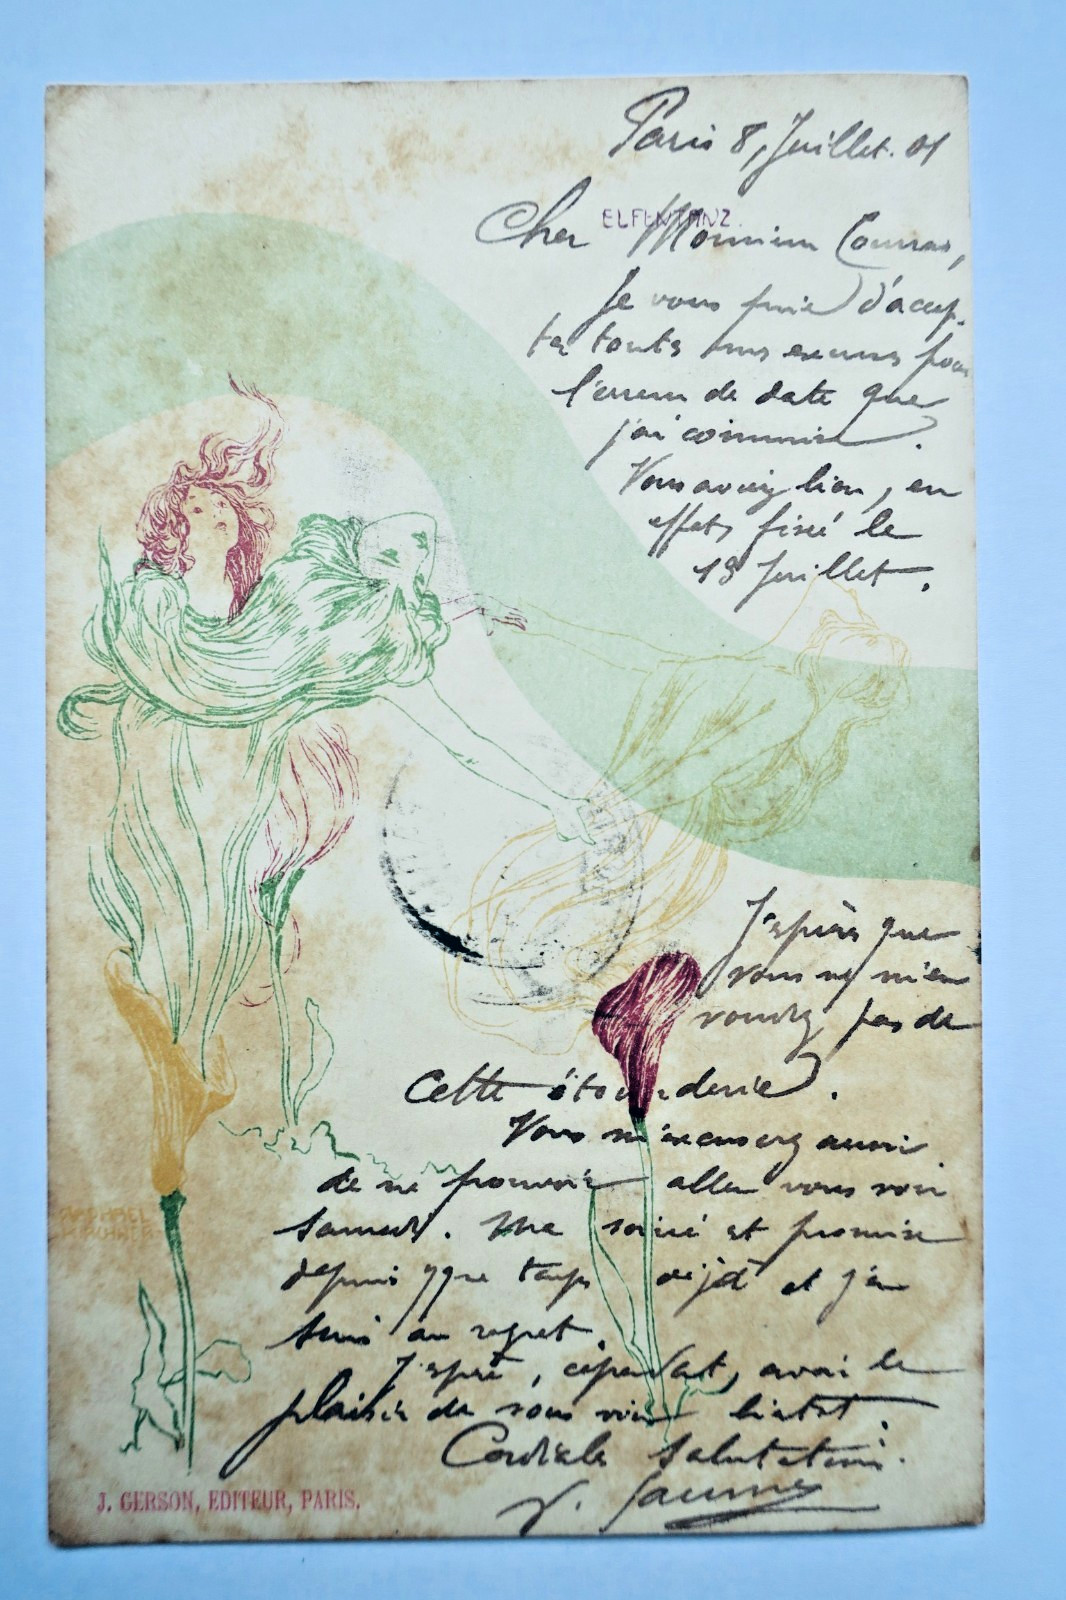 Paris 8, Juillet. 01
ELFENTANZ.
Cher Monsieur
Je vous prie d'accep-
ter toutes mes excuses pour
l'erreur de date que
j'ai commise.
Vous aviez bien, en
effet, fixé le
13 Juillet.
J'espère que
vous ne m'en
voudrez pas de
Cette étourderie.
Vous m'excuserez aussi
de ne pouvoir aller vous voir
samedi. Ma soirée est promise
depuis qque temps déjà et j'en
suis au regret.
J'espère, cependant, avoir le
plaisir de vous voir bientôt.
Cordiales salutations.
RAPHAEL
KIRCHNER
J. GERSON, EDITEUR, PARIS.